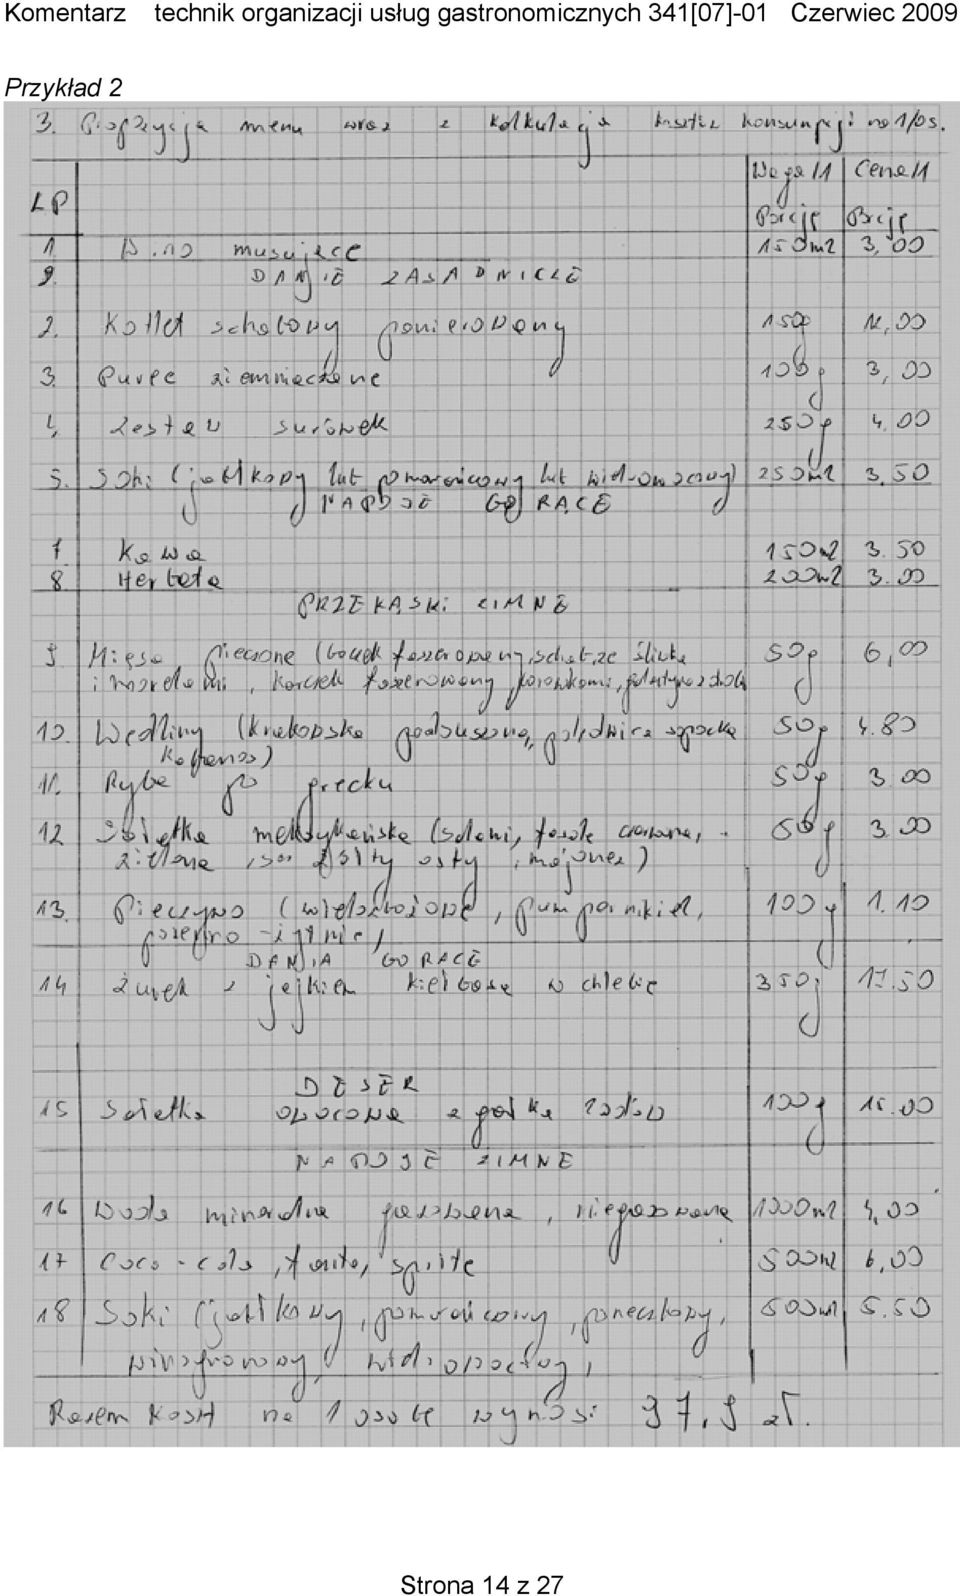 Komentarz technik organizacji usług gastronomicznych 341[07]-01 Czerwiec 2009
Przykład 2
3. Propozycja menu wraz z kalkulacją kosztu konsumpcji na 1/os.
LP Waga/1 Porcję Cena/1 Porcję
1. Wino musujące 150ml 3,00
DANIE ZASADNICZE
2. Kotlet schabowy panierowany 150g 12,00
3. Puree ziemniaczane 100g 3,00
4. Zestaw surówek 250g 4.00
5. Soki (jabłkowy lub pomarańczowy lub wieloowocowy) 250ml 3.50
NAPOJE GORĄCE
7 Kawa 150ml 3.50
8. Herbata 200ml 3.00
PRZEKĄSKI ZIMNE
9 Mięsa pieczone (boczek faszerowany, schab ze śliwką 50g 6,00
i morelami, karczek faszerowany
10. Wędliny (krakowska podsuszona, polędwica sopocka 50g 4.80
Kabanos)
11. Ryba po grecku 50g 3.00
12 Sałatka meksykańska (salami, fasola czerwona, 50g 3.00
zielona, ser żółty, majonez)
13. Pieczywo (wielozbożowe, pumpernikiel, 100g 1.10
pszenno-żytnie)
DANIA GORĄCE
14 Żurek z jajkiem kiełbasą w chlebie 350g 17.50
DESER
15 Sałatka owocowa z gałką lodów 100g 15.00
NAPOJE ZIMNE
16 Woda mineralna gazowana, niegazowana 1000ml 4,00
17 Coca-cola, fanta, sprite 500ml 6,00
18 Soki (jabłkowy, pomarańcowy, porzeczkowy, 500ml 5.50
winogronowy, wieloowocowy,
Razem koszt na 1 osobę wynosi 97,9 zł.
Strona 14 z 27